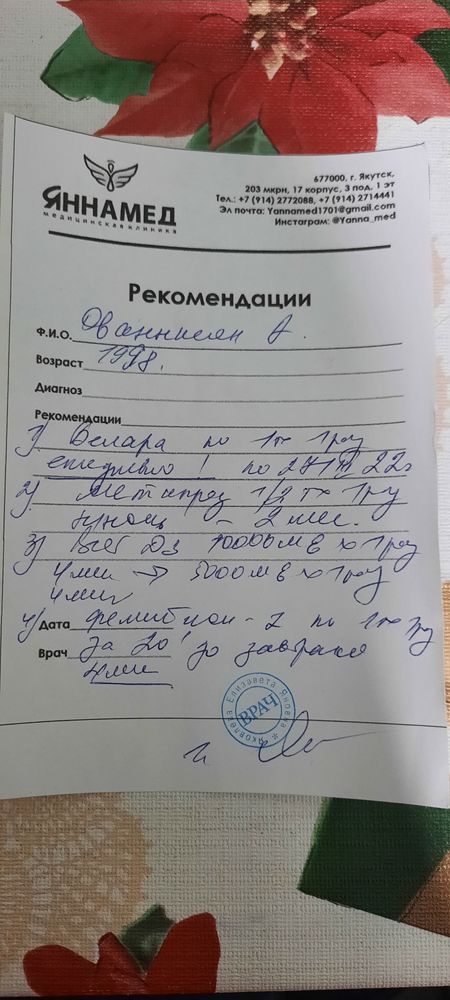 ЯННАМЕД
медицинская клиника
677000, г. Якутск,
203 мкрн, 17 корпус, 3 под. 1 эт
Тел.: +7 (914) 2772088, +7 (914) 2714441
Эл почта: Yannamed1701@gmail.com
Инстаграм: @Yanna_med
Рекомендации
Ф.И.О. Ованнисян А.
Возраст 1998.
Диагноз
Рекомендации
1) Белара по 1тк 1 рау
ежедневно! по
2) 1/2 тк 1 ру
- 2 мес.
3) Вит D3 10000 МЕ х 1 рау
4 мес → 5000 МЕ х 1 рау
4 мес
4) Дата фемибион-2 по 1 тк
Врач за 20' до завтрака
4 мес
Яковлева Елизавета Яновна
ВРАЧ